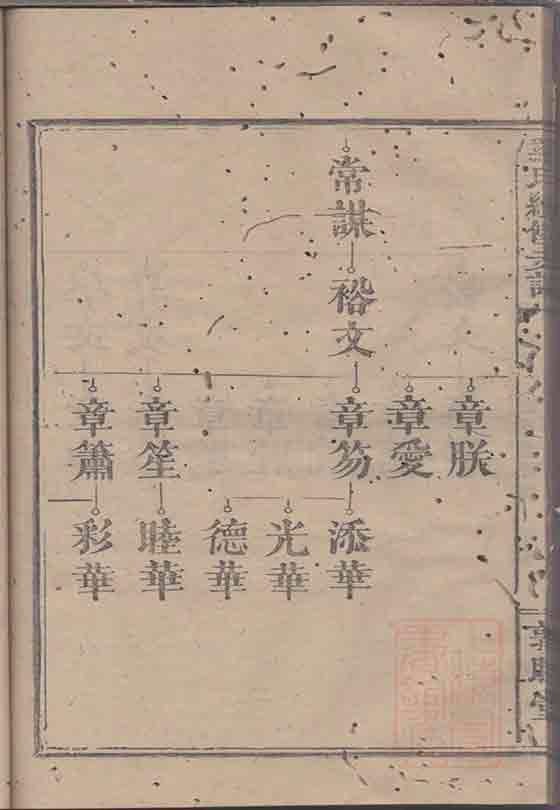 常謀
裕文
章朕
章愛
章笏
章笙
章簫
添華
光華
德華
睦華
彩華